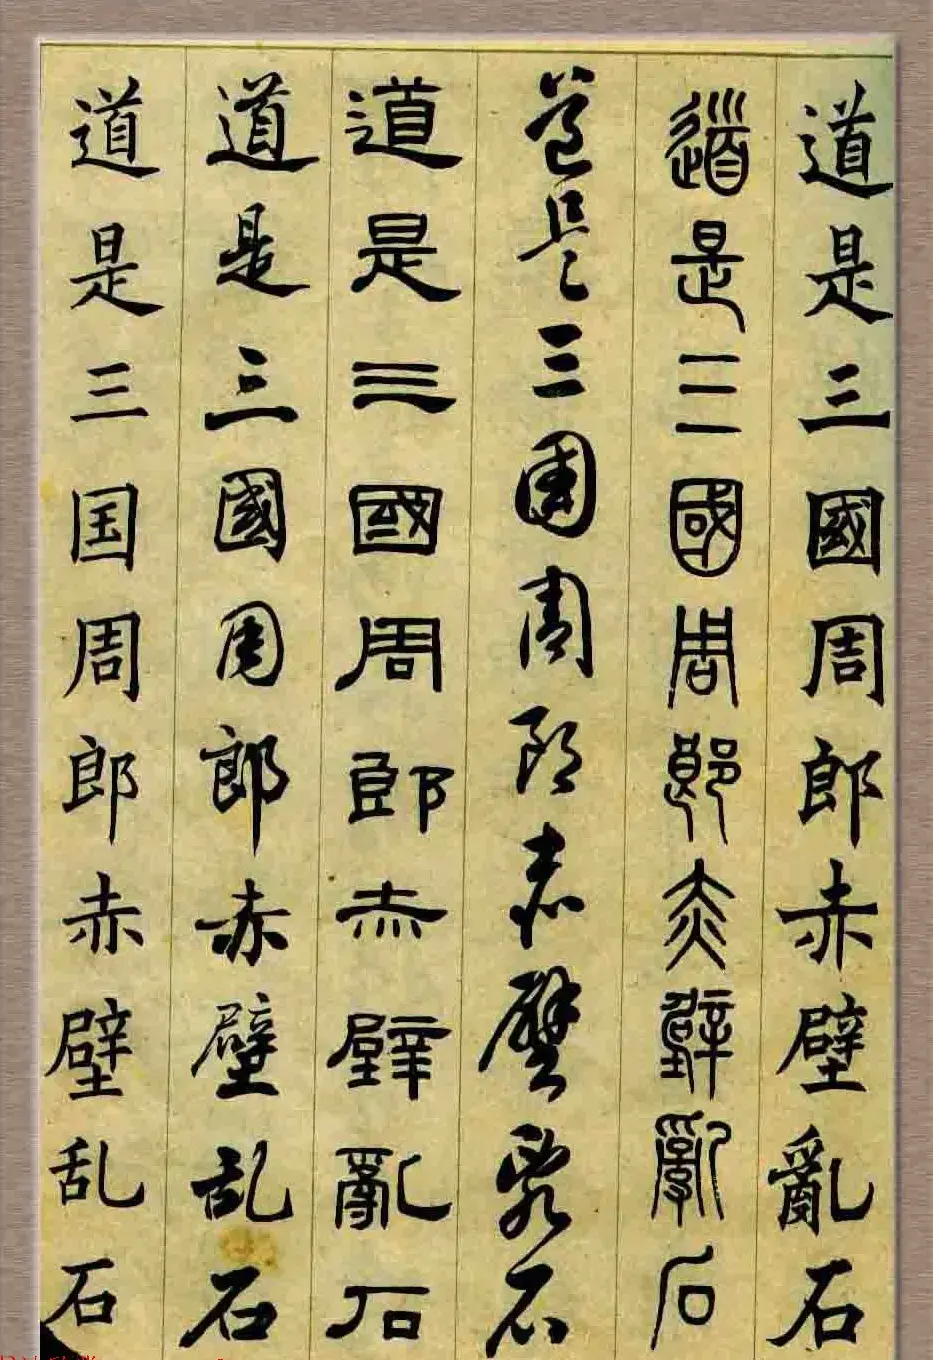 道是三國周郎赤壁亂石
道是三國周郎赤壁亂石
道是三國周郎赤壁亂石
道是三國周郎赤壁亂石
道是三國周郎赤壁乱石
道是三国周郎赤壁乱石